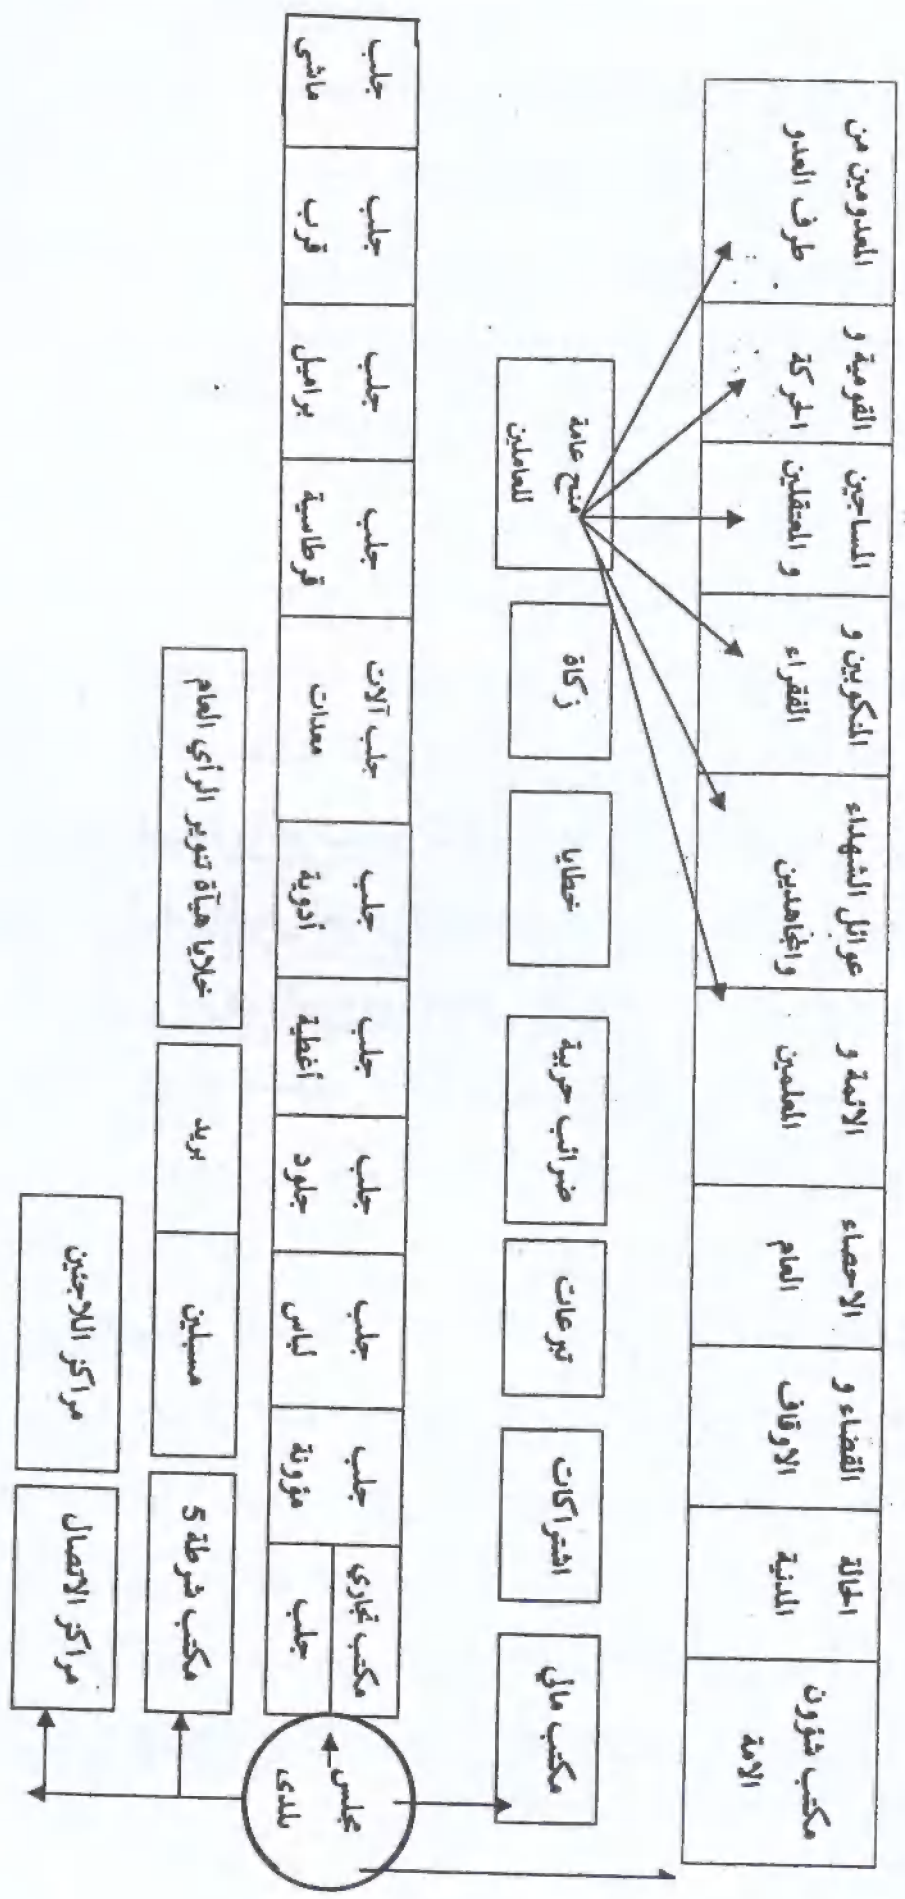 مكتب شؤون
الامة
الحالة
المدنية
القضاء و
الاوقاف
الاحصاء
العام
الائمة و
المعلمين
عوائل الشهداء
والمجاهدين
المنكوبين و
الفقراء
المساجين
و المعتقلين
القومية و
الحركة
المعدومين من
طرف العدو
مكتب مالي
اشتراكات
تبرعات
ضرائب حربية
خطايا
زكاة
منح عامة
للعاملين
مجلس
بلدى
مكتب تجاري
جلب
جلب
مؤونة
جلب
لباس
جلب
جلود
جلب
أغطية
جلب
أدوية
جلب آلات
معدات
جلب
قرطاسية
جلب
براميل
جلب
قرب
جلب
ماشى
مكتب شرطة 5
مسبلين
بريد
خلايا هيآة تنوير الرأي العام
مراكز الاتصال
مراكز اللاجئين